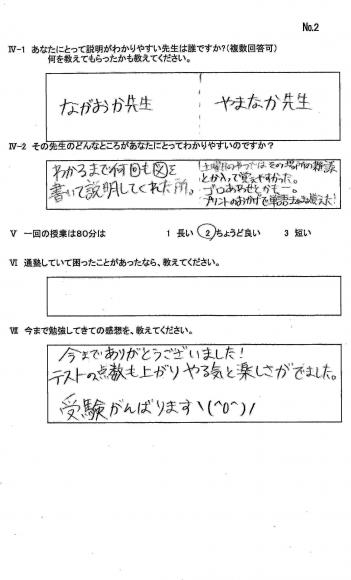 No.2
Ⅳ-1 あなたにとって説明がわかりやすい先生は誰ですか?(複数回答可)
何を教えてもらったかも教えてください。
ながおか先生 やまなか先生
Ⅳ-2 その先生のどんなところがあなたにとってわかりやすいのですか?
わかるまで何回も図を
書いて説明してくれた所。
土曜日のやつではその場所の雑談
とか入って覚えやすかった。
ゴロあわせとかもー。
プリントのおかげで単語も覚えた!
Ⅴ 一回の授業は80分は 1 長い 2 ちょうど良い 3 短い
Ⅵ 通塾していて困ったことがあったなら、教えてください。
Ⅶ 今まで勉強してきての感想を、教えてください。
今までありがとうございました!
テストの点数も上がりやる気と楽しさがでました。
受験がんばります\(^0^)/